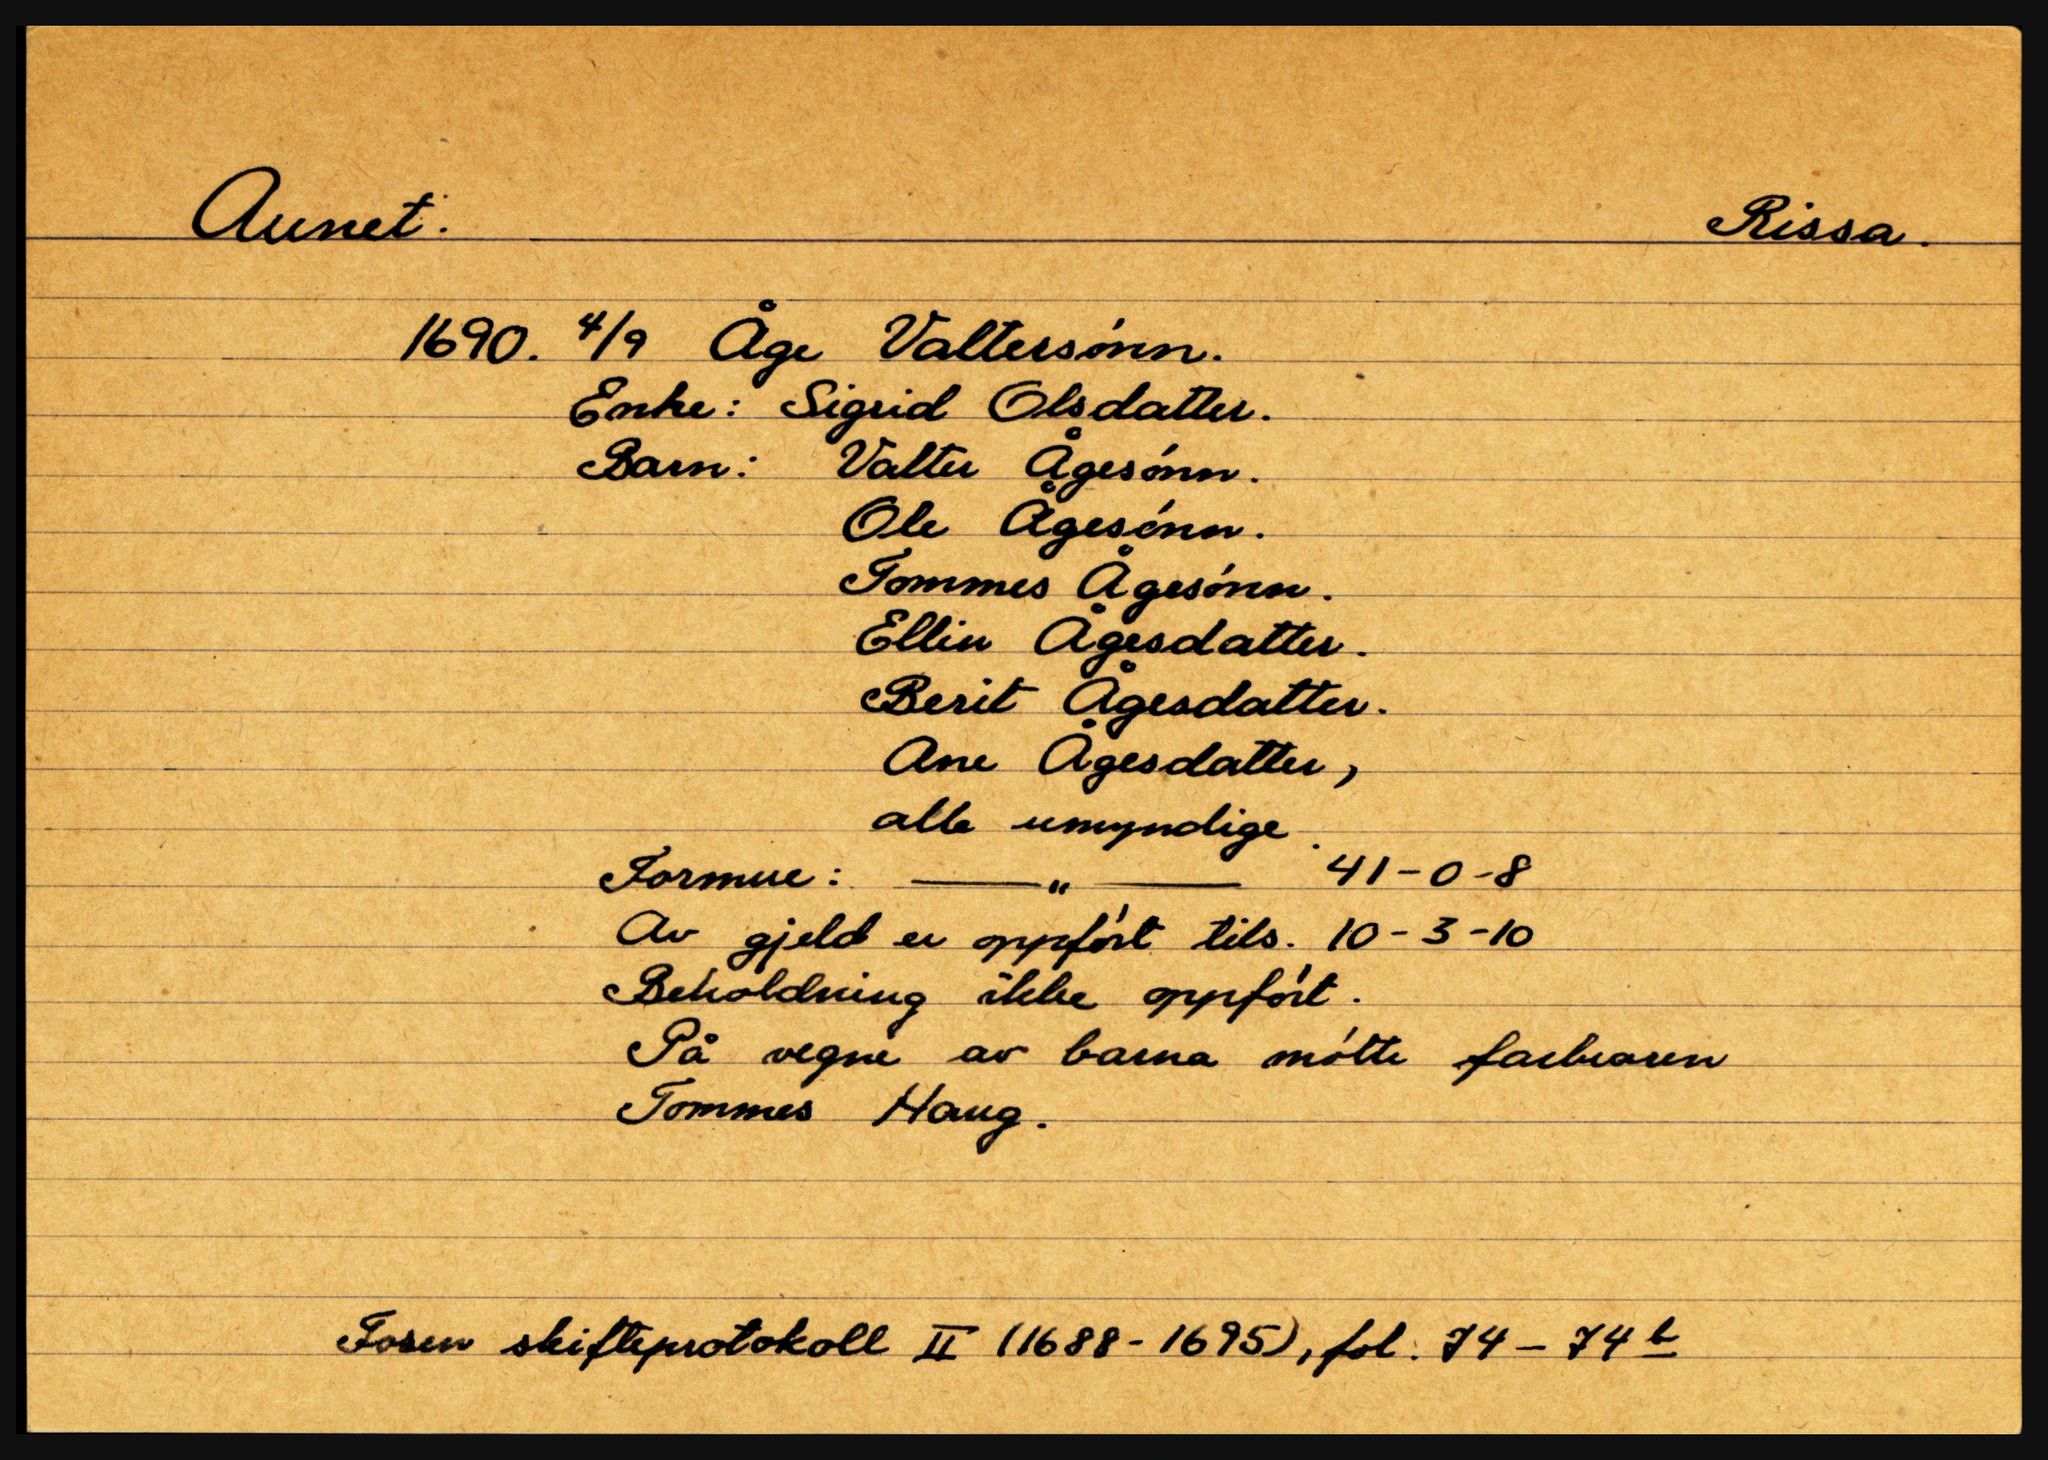 Aunet. Rissa.
1690. 4/9 Åge Valtersónn.
Enke: Sigrid Olsdatter.
Barn: Valter Ågesónn.
Ole Ågesónn.
Tommes Ågesónn.
Ellin Ågesdatter.
Berit Ågesdatter.
Ane Ågesdatter,
alle umyndige.
Formue: —— " —— 41-0-8
Av gjeld er oppfórt tils. 10-3-10
Beholdning ikke oppfórt.
På vegne av barna mótte farbroren
Tommes Haug.
Fosen skifteprotokoll II (1688-1695), fol. 74-74b